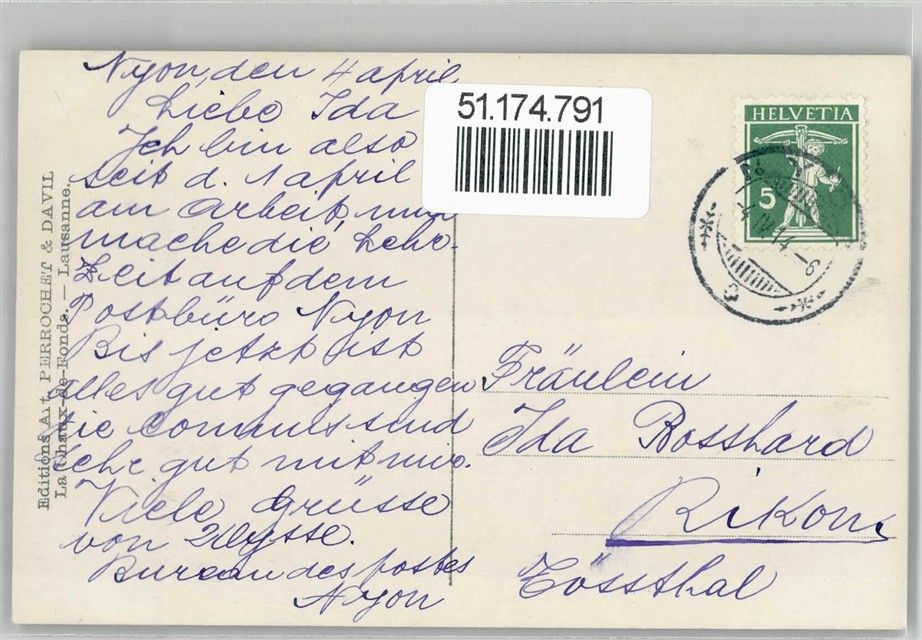 Nyon, den 4 april
Liebe Ida
Ich bin also
seit d. 1 april
am Arbeit, und
mache die Lehr-
Zeit auf dem
Postbüro Nyon
Bis jetzt ist
alles gut gegangen
die Commis sind
sehr gut mit mir.
Viele Grüsse
von Ulysse.
Bureau des postes
Nyon
51.174.791
HELVETIA
5
-4.IV.14.-6
Fräulein
Ida Bosshard
Rikon
Tössthal
Editions Art. PERROCHET & DAVID
La Chaux-de-Fonds. — Lausanne.